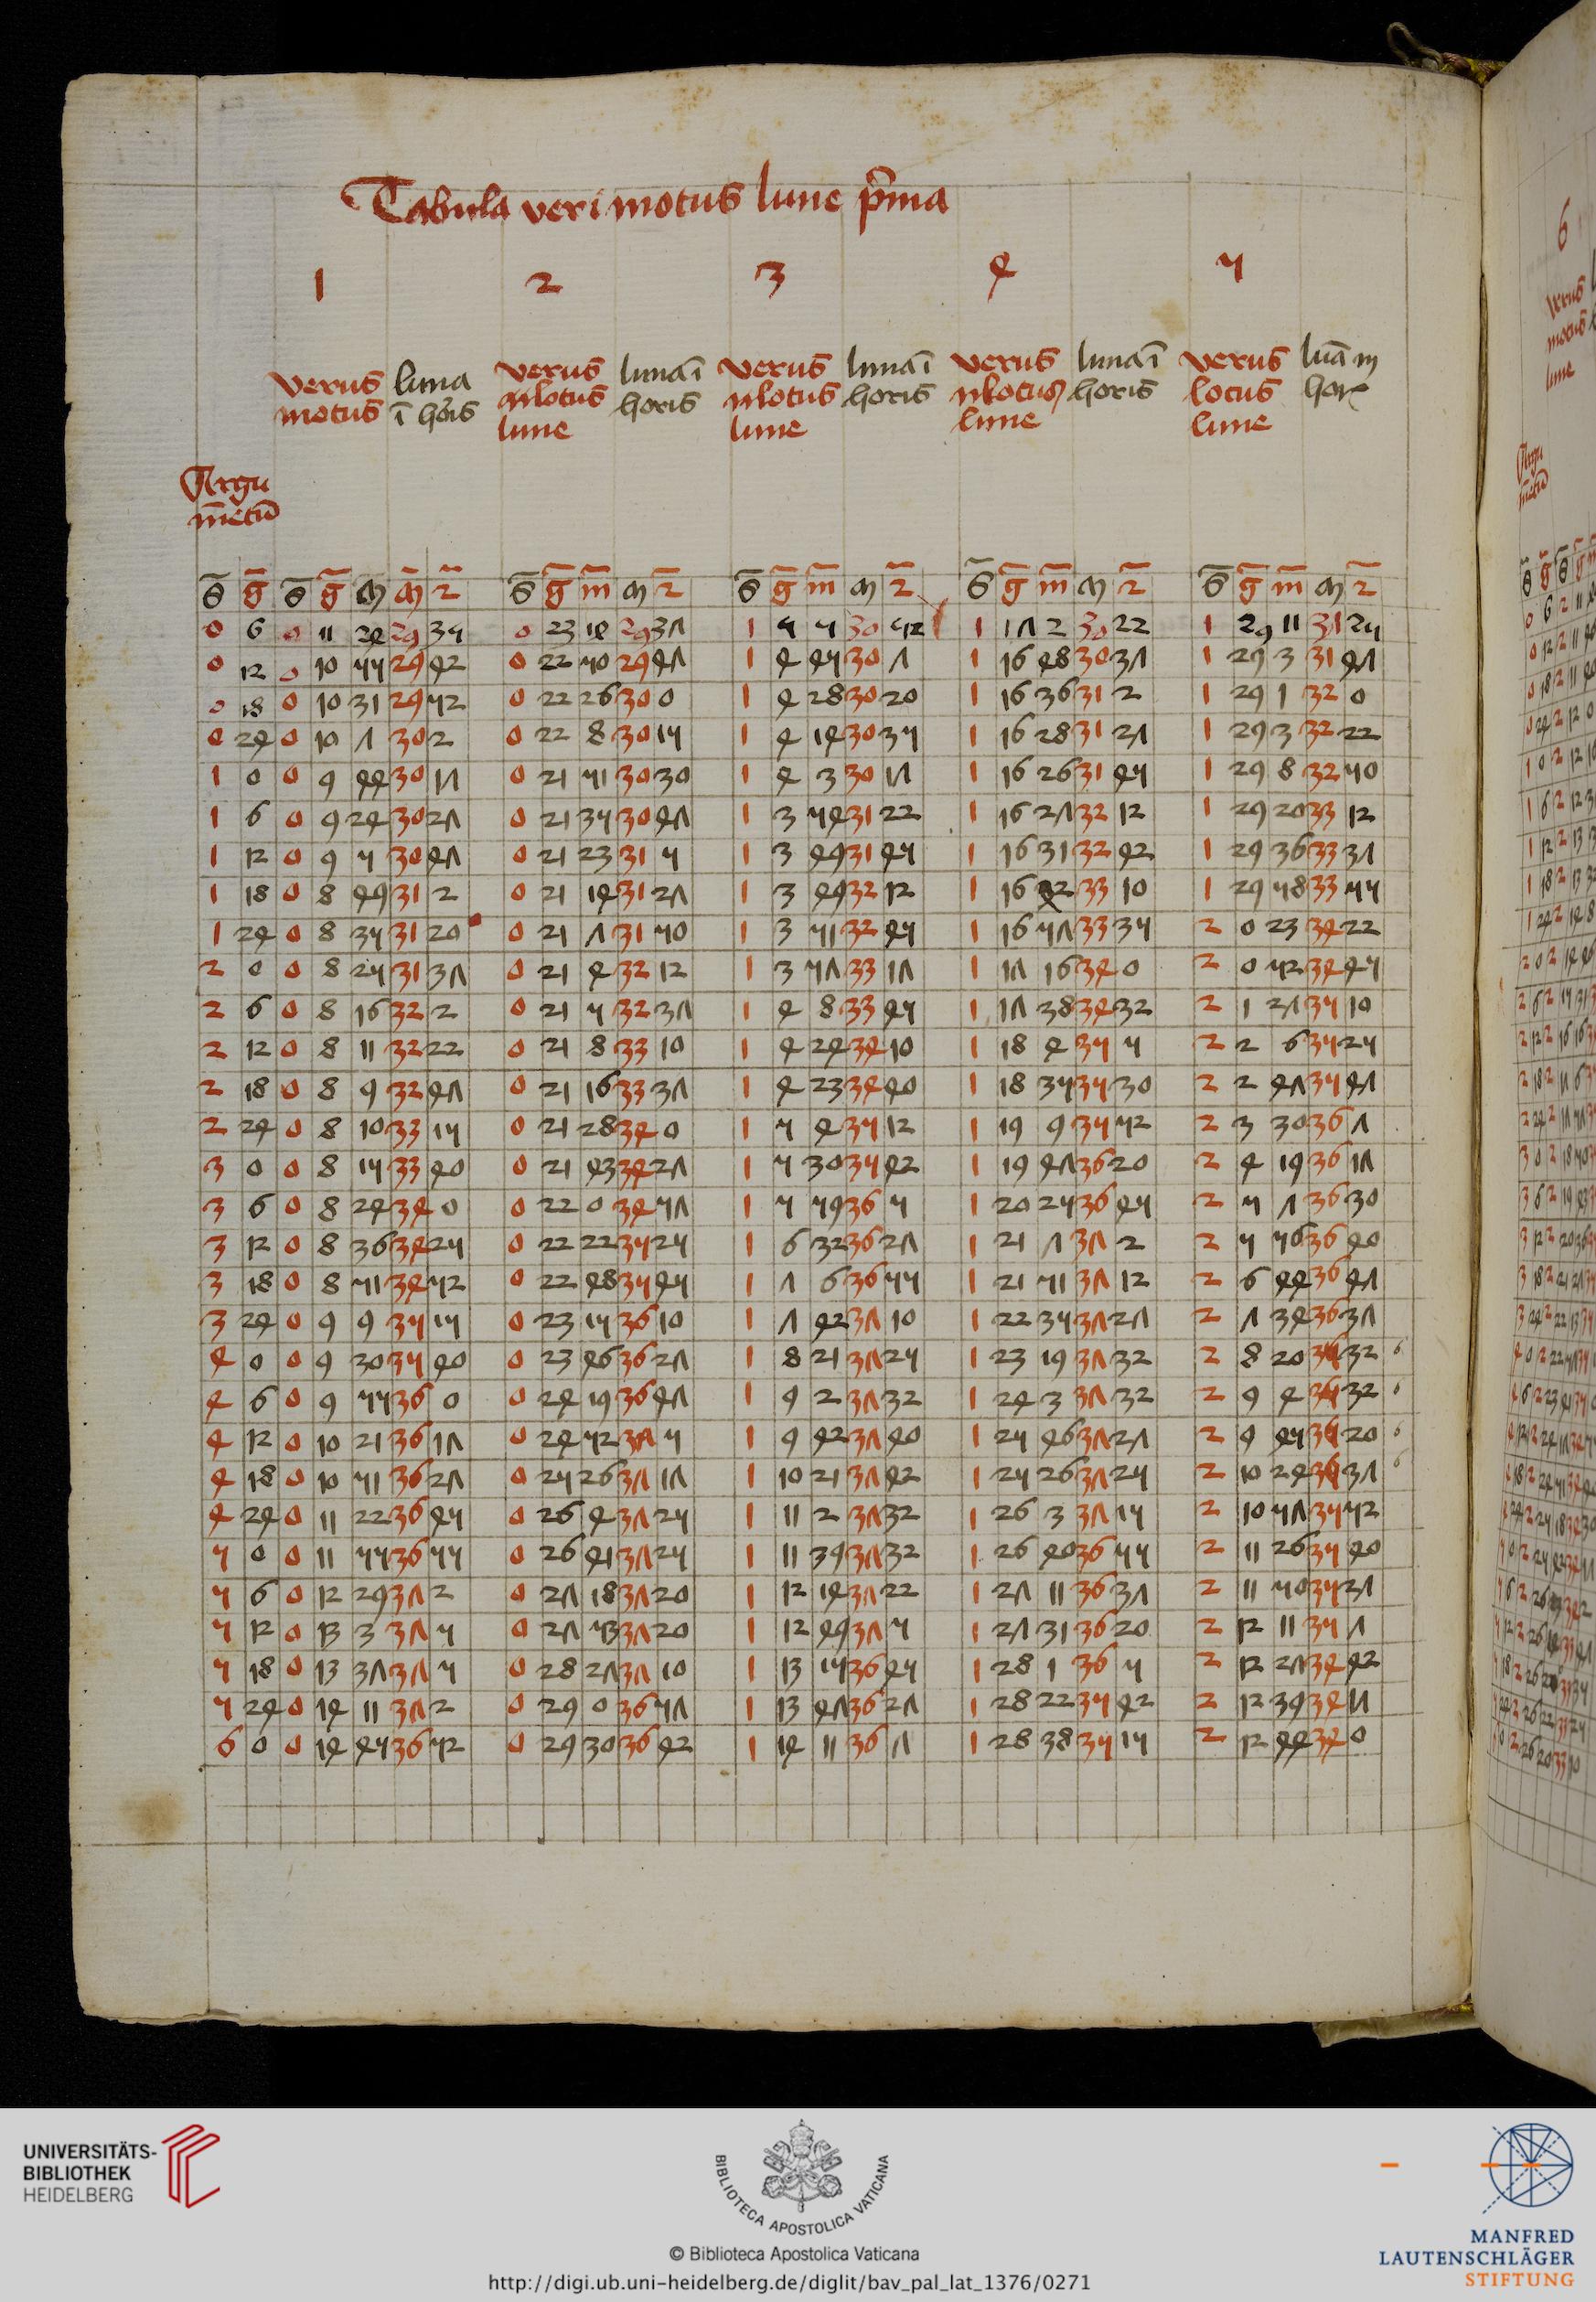 Tabula veri motus lune p̄ma
1 2 3 4 5
verus motus luna ī horis verus motus lune luna ī horis verus motus lune luna ī horis verus motus lune luna ī horis verus locus lune lūa in hor
Argu
mētū
S g S g m m 2 S g m m 2 S g m m 2 S g m m 2 S g m m 2
0 6 0 11 24 29 35 0 23 14 29 37 1 5 5 30 52 1 17 2 30 22 1 29 11 31 25
0 12 0 10 55 29 42 0 22 50 29 47 1 4 45 30 7 1 16 48 30 37 1 29 3 31 47
0 18 0 10 31 29 52 0 22 26 30 0 1 4 28 30 20 1 16 36 31 2 1 29 1 32 0
0 24 0 10 7 30 2 0 22 8 30 15 1 4 14 30 35 1 16 28 31 27 1 29 3 32 22
1 0 0 9 44 30 17 0 21 51 30 30 1 4 3 30 17 1 16 26 31 45 1 29 8 32 50
1 6 0 9 24 30 27 0 21 35 30 47 1 3 54 31 22 1 16 27 32 12 1 29 20 33 12
1 12 0 9 5 30 47 0 21 23 31 5 1 3 49 31 45 1 16 31 32 42 1 29 36 33 37
1 18 0 8 49 31 2 0 21 14 31 27 1 3 49 32 12 1 16 42 33 10 1 29 58 33 55
1 24 0 8 35 31 20 0 21 7 31 50 1 3 51 32 45 1 16 57 33 35 2 0 23 34 22
2 0 0 8 25 31 37 0 21 4 32 12 1 3 57 33 17 1 17 16 34 0 2 0 52 34 45
2 6 0 8 16 32 2 0 21 5 32 37 1 4 8 33 45 1 17 38 34 32 2 1 27 35 10
2 12 0 8 11 32 22 0 21 8 33 10 1 4 24 34 10 1 18 4 35 5 2 2 6 35 25
2 18 0 8 9 32 47 0 21 16 33 37 1 4 23 34 40 1 18 35 35 30 2 2 47 35 47
2 24 0 8 10 33 15 0 21 28 34 0 1 5 4 35 12 1 19 9 35 52 2 3 30 36 7
3 0 0 8 15 33 40 0 21 43 34 27 1 5 30 35 42 1 19 47 36 20 2 4 19 36 17
3 6 0 8 24 34 0 0 22 0 34 57 1 5 59 36 5 1 20 25 36 45 2 5 7 36 30
3 12 0 8 36 34 25 0 22 22 35 25 1 6 32 36 27 1 21 7 37 2 2 5 56 36 40
3 18 0 8 51 34 52 0 22 48 35 45 1 7 6 36 55 1 21 51 37 12 2 6 44 36 47
3 24 0 9 9 35 15 0 23 15 36 10 1 7 42 37 10 1 22 35 37 27 2 7 34 36 37
4 0 0 9 30 35 40 0 23 46 36 27 1 8 21 37 25 1 23 19 37 32 2 8 20 36 32 6
4 6 0 9 55 36 0 0 24 19 36 47 1 9 2 37 32 1 24 3 37 32 2 9 4 36 32 6
4 12 0 10 21 36 17 0 24 52 37 5 1 9 42 37 40 1 25 46 37 27 2 9 45 36 20 6
4 18 0 10 51 36 27 0 25 26 37 17 1 10 21 37 42 1 25 26 37 25 2 10 24 36 37 6
4 24 0 11 22 36 45 0 26 4 37 25 1 11 2 37 32 1 26 3 37 15 2 10 57 35 52
5 0 0 11 55 36 55 0 26 41 37 25 1 11 39 37 32 1 26 40 36 55 2 11 26 35 40
5 6 0 12 29 37 2 0 27 18 37 20 1 12 14 37 22 1 27 11 36 37 2 11 50 35 27
5 12 0 13 3 37 5 0 27 53 37 20 1 12 49 37 5 1 27 31 36 20 2 12 11 35 7
5 18 0 13 37 37 5 0 28 27 37 10 1 13 15 36 45 1 28 1 36 5 2 12 27 34 42
5 24 0 14 11 37 2 0 29 0 36 57 1 13 47 36 27 1 28 22 35 42 2 12 39 34 17
6 0 0 14 45 36 52 0 29 30 36 42 1 14 11 36 7 1 28 38 35 15 2 12 44 34 0
UNIVERSITÄTS-
BIBLIOTHEK
HEIDELBERG
BIBLIOTECA APOSTOLICA VATICANA
© Biblioteca Apostolica Vaticana
http://digi.ub.uni-heidelberg.de/diglit/bav_pal_lat_1376/0271
MANFRED
LAUTENSCHLÄGER
STIFTUNG